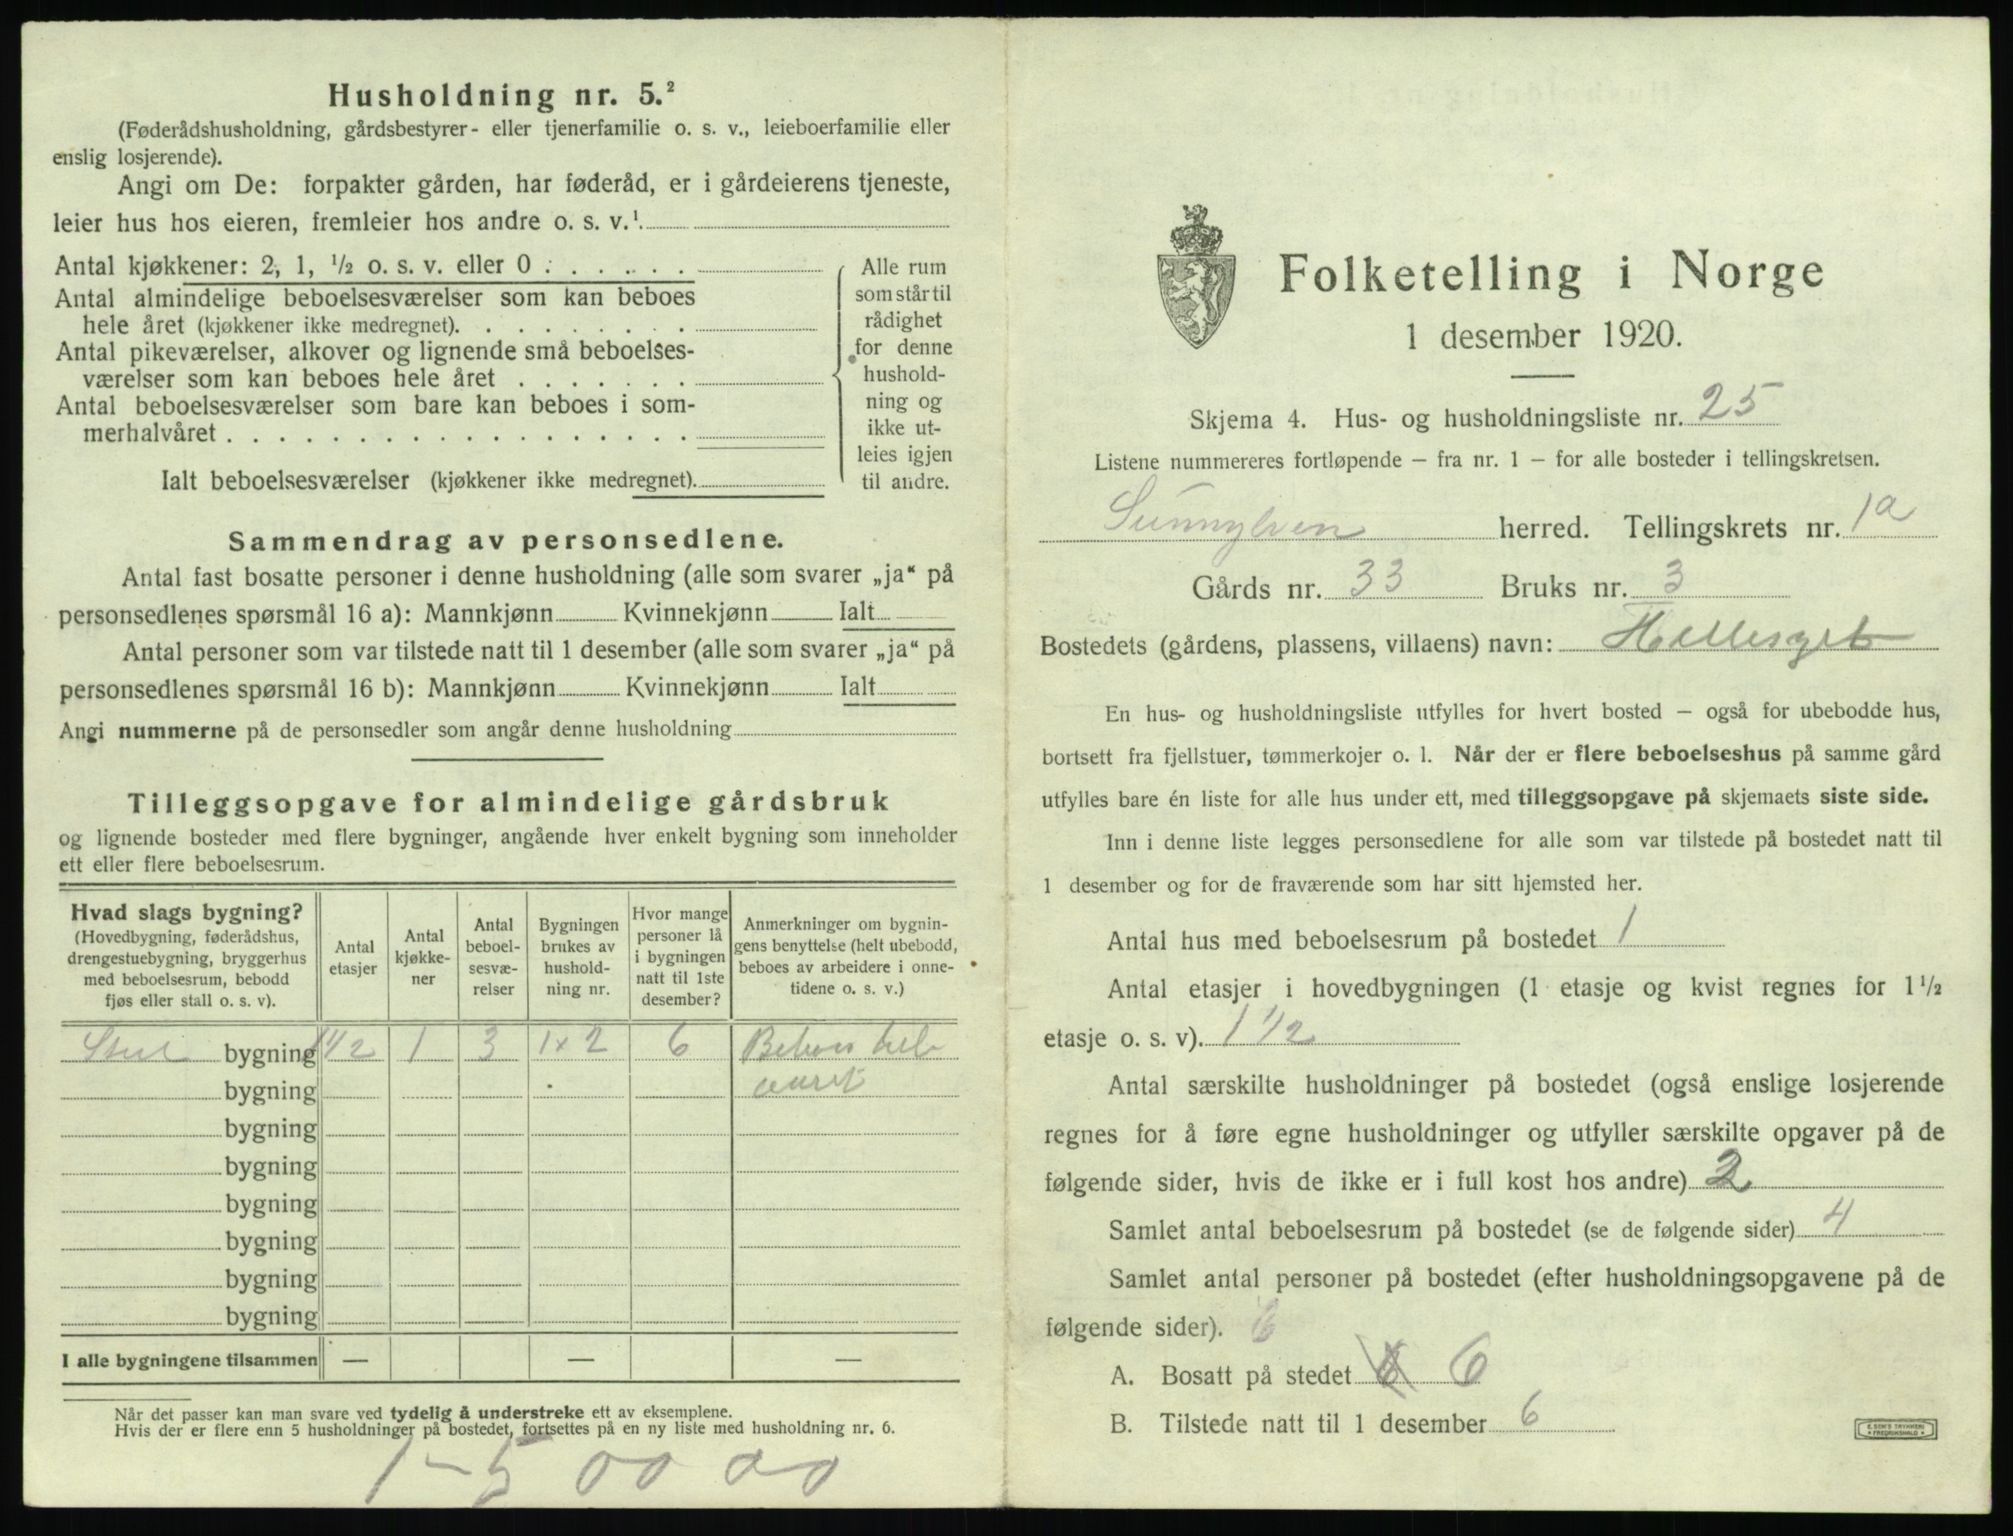 Husholdning nr. 5.²
(Føderådshusholdning, gårdsbestyrer- eller tjenerfamilie o. s. v., leieboerfamilie eller
enslig losjerende).
Angi om De: forpakter gården, har føderåd, er i gårdeierens tjeneste,
leier hus hos eieren, fremleier hos andre o. s. v.¹
Antal kjøkkener: 2, 1, ½ o. s. v. eller 0 . . . . . .
Antal almindelige beboelsesværelser som kan beboes
hele året (kjøkkener ikke medregnet). . . . . . . . .
Antal pikeværelser, alkover og lignende små beboelses-
værelser som kan beboes hele året . . . . . . .
Antal beboelsesværelser som bare kan beboes i som-
merhalvåret . . . . . . . . . . . . . . . . . .
Ialt beboelsesværelser (kjøkkener ikke medregnet).
Alle rum
som står til
rådighet
for denne
hushold-
ning og
ikke ut-
leies igjen
til andre.
Sammendrag av personsedlene.
Antal fast bosatte personer i denne husholdning (alle som svarer „ja“ på
personsedlenes spørsmål 16 a): Mannkjønn Kvinnekjønn Ialt
Antal personer som var tilstede natt til 1 desember (alle som svarer „ja“ på
personsedlenes spørsmål 16 b): Mannkjønn Kvinnekjønn Ialt
Angi nummerne på de personsedler som angår denne husholdning
Tilleggsopgave for almindelige gårdsbruk
og lignende bosteder med flere bygninger, angående hver enkelt bygning som inneholder
ett eller flere beboelsesrum.
Hvad slags bygning?
(Hovedbygning, føderådshus,
drengestuebygning, bryggerhus
med beboelsesrum, bebodd
fjøs eller stall o. s. v).
Antal
etasjer
Antal
kjøkke-
ner
Antal
beboel-
sesvæ-
relser
Bygningen
brukes av
hushold-
ning nr.
Hvor mange
personer lå
i bygningen
natt til 1ste
desember?
Anmerkninger om bygnin-
gens benyttelse (helt ubebodd,
beboes av arbeidere i onne-
tidene o. s. v.)
bygning 1½ 1 3 1 x 2 6 Beboes hele
bygning aaret
bygning
bygning
bygning
bygning
bygning
bygning
I alle bygningene tilsammen — — —
Når det passer kan man svare ved tydelig å understreke ett av eksemplene.
Hvis der er flere enn 5 husholdninger på bostedet, fortsettes på en ny liste med husholdning nr. 6.
1-5 00 00
Folketelling i Norge
1 desember 1920.
Skjema 4. Hus- og husholdningsliste nr. 25
Listene nummereres fortløpende – fra nr. 1 – for alle bosteder i tellingskretsen.
Sunnylven herred. Tellingskrets nr. 1a
Gårds nr. 33 Bruks nr. 3
Bostedets (gårdens, plassens, villaens) navn: Hellesylt
En hus- og husholdningsliste utfylles for hvert bosted – også for ubebodde hus,
bortsett fra fjellstuer, tømmerkojer o. l. Når der er flere beboelseshus på samme gård
utfylles bare én liste for alle hus under ett, med tilleggsopgave på skjemaets siste side.
Inn i denne liste legges personsedlene for alle som var tilstede på bostedet natt til
1 desember og for de fraværende som har sitt hjemsted her.
Antal hus med beboelsesrum på bostedet 1
Antal etasjer i hovedbygningen (1 etasje og kvist regnes for 1½
etasje o. s. v). 1½
Antal særskilte husholdninger på bostedet (også enslige losjerende
regnes for å føre egne husholdninger og utfyller særskilte opgaver på de
følgende sider, hvis de ikke er i full kost hos andre) 2
Samlet antal beboelsesrum på bostedet (se de følgende sider) 4
Samlet antal personer på bostedet (efter husholdningsopgavene på de
følgende sider). 6
A. Bosatt på stedet 6
B. Tilstede natt til 1 desember 6